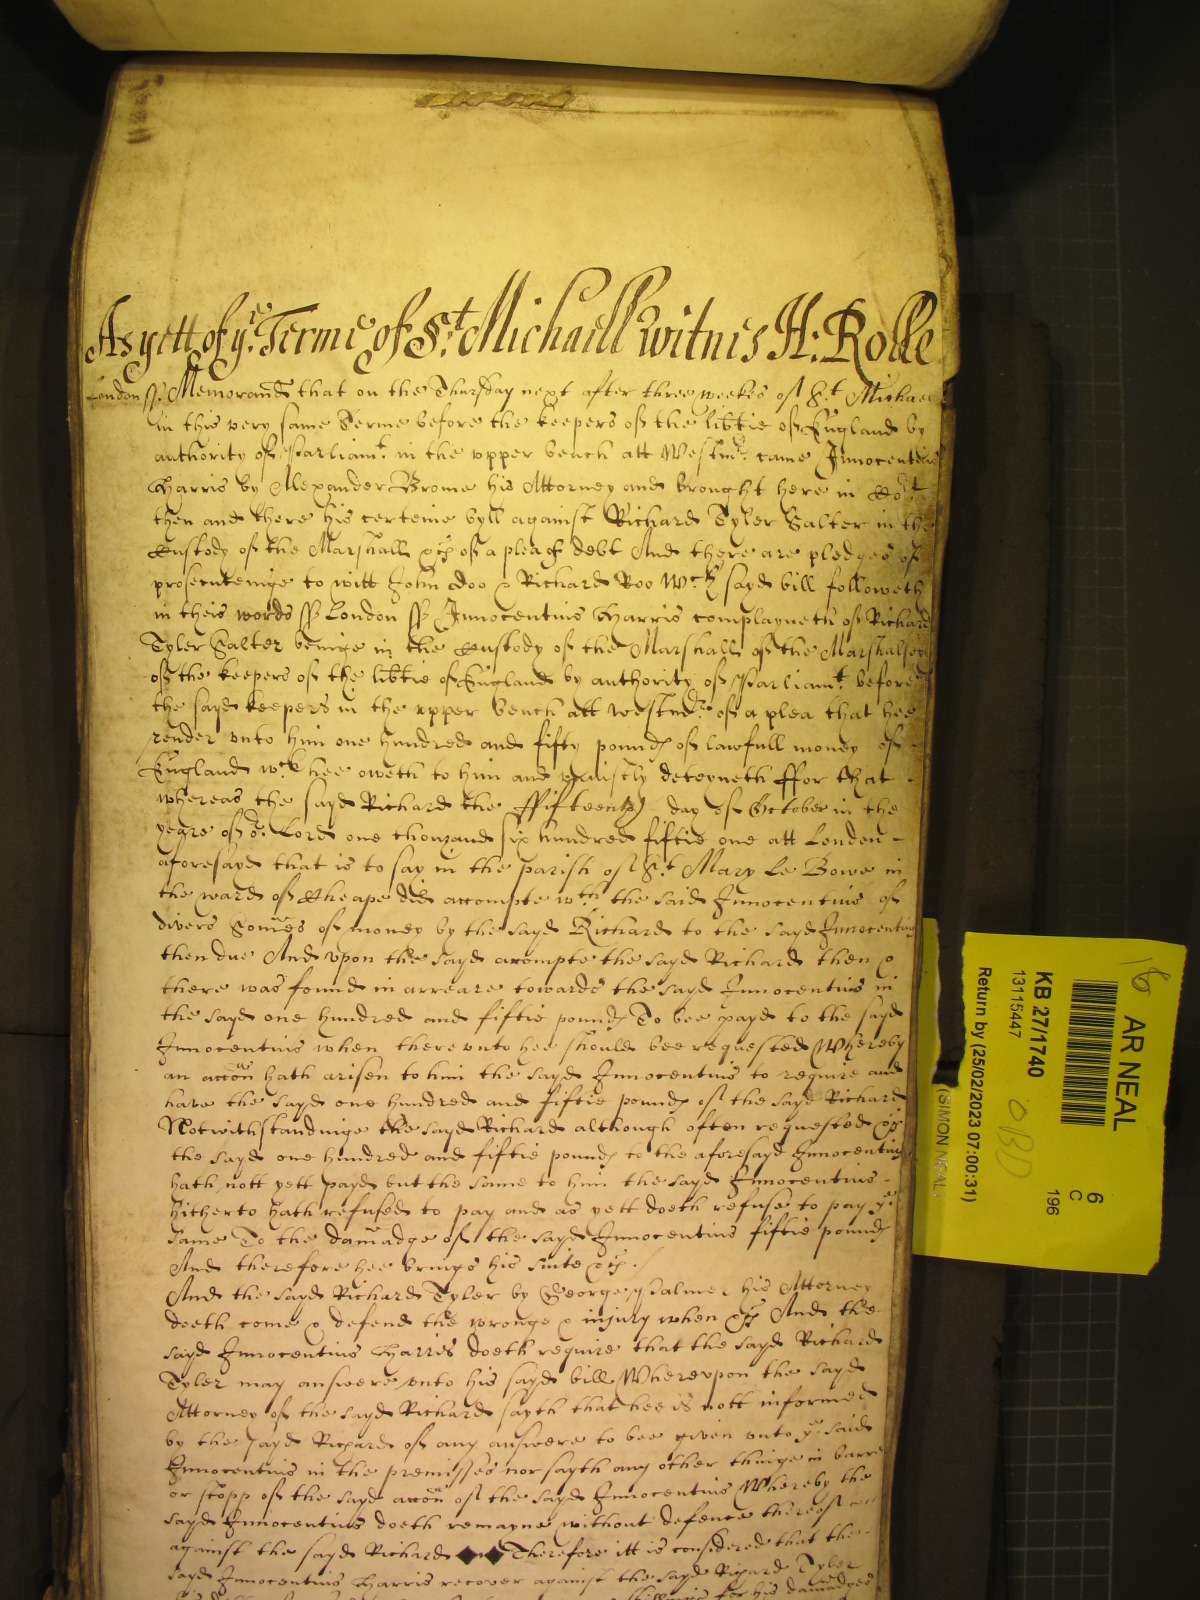 As yett of ye Terme of St Michaell Witnis H: Rolle
London ss Memorand that on the Thursday next after three weekes of St Michae
in this very same Terme before the keepers of the libtie of England by
authority of Parliamt in the vpper bench att Westmr came Innocentius
Harris by Alexander Brome his Attorney and brought here in Cort
then and there his certeine byll against Richard Tyler Salter in the
Custody of the Marshall &c of a plea of debt And there are pledges of
prosecuteinge to witt John Doo & Richard Roo Wch sayd bill followeth
in theis words ss London ss Innocentius Harris complayneth of Richard
Tyler Salter beinge in the Custody of the Marshall of the Marshalsey
of the keepers of the libtie of England by authority of Parliamt before
the sayd keepers in the vpper bench att Westmr of a plea that hee
render vnto him one hundred and fifty pounds of lawfull money of
England wch hee oweth to him and vniustly deteyneth ffor that
whereas the sayd Richard the ffifteenth day of October in the
yeare of or Lord one thouzand six hundred fiftie one att London
aforesayd that is to say in the parish of St Mary Le Bowe in
the ward of Cheape did accompte wth the said Innocentius of
divers Somes of money by the sayd Richard to the sayd Innocentius
then due And vpon the sayd accompte the sayd Richard then &
there was found in arreare towards the sayd Innocentius in
the sayd one hundred and fiftie pounds To bee payd to the sayd
Innocentius when there vnto hee should bee requested Whereby
an accon hath arisen to him the sayd Innocentius to require and
have the sayd one hundred and fiftie pounds of the sayd Richard
Notwithstandinge the sayd Richard although often requested &c
the sayd one hundred and fiftie pounds to the aforesayd Innocentius
hath nott yett payd but the same to him the sayd Innocentius
hitherto hath refused to pay and as yett doeth refuse to pay ye
same To the damadge of the sayd Innocentius fiftie pounds
And therefore hee brings his suite &c
And the sayd Richard Tyler by George Palmer his Attorney
doeth come & defend the wronge & iniury when &c And the
sayd Innocentius Harris doeth require that the sayd Richard
Tyler may answere vnto his sayd bill Wherevpon the sayd
Attorney of the sayd Richard sayth that hee is nott informed
by the sayd Richard of any answere to bee given vnto ye said
Innocentius in the premisses nor sayth any other thinge in barre
or stopp of the sayd accon of the sayd Innocentius Whereby the
sayd Innocentius doeth remayne without defence thereof
against the sayd Richard Therefore itt is considered that the
sayd Innocentius Harris recover against the sayd Richard Tyler
for his damadges
16
AR NEAL
KB 27/1740
13115447
Return by (25/02/2023 07:00:31)
6
C
196
(SIMON NEAL)